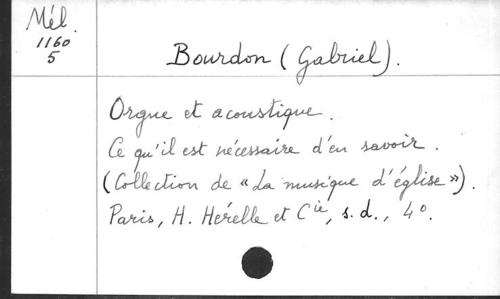 Mél.
1160
5
Bourdon (Gabriel).
Orgue et acoustique.
Ce qu'il est nécessaire d'en savoir.
(Collection de « La musique d'église »).
Paris, H. Hérelle et Cie, s.d., 4º.